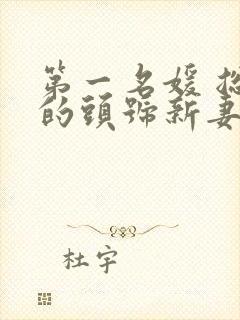 第一名媛
的頭號新妻
杜宇